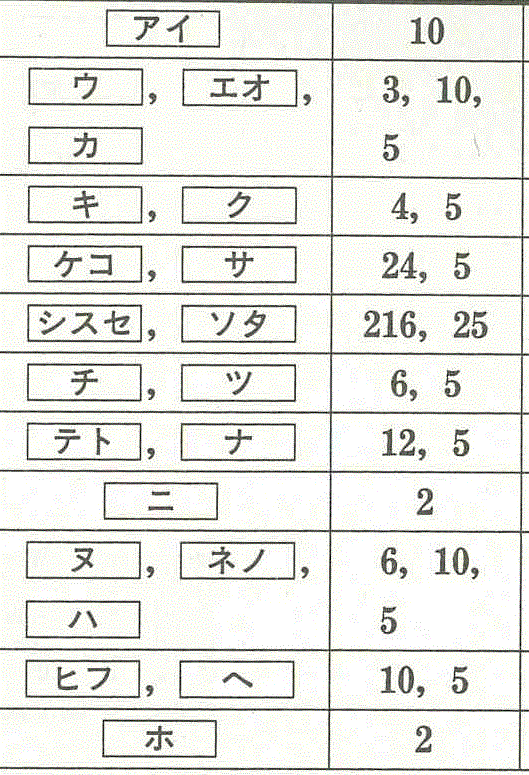 アイ 10
ウ, エオ, 3, 10,
カ 5
キ, ク 4, 5
ケコ, サ 24, 5
シスセ, ソタ 216, 25
チ, ツ 6, 5
テト, ナ 12, 5
ニ 2
ヌ, ネノ, 6, 10,
ハ 5
ヒフ, ヘ 10, 5
ホ 2